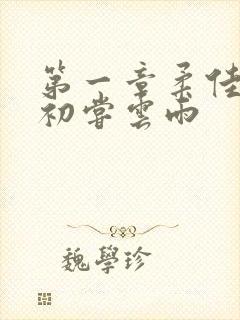 第一章柔佳
初嘗雲雨
魏學珍